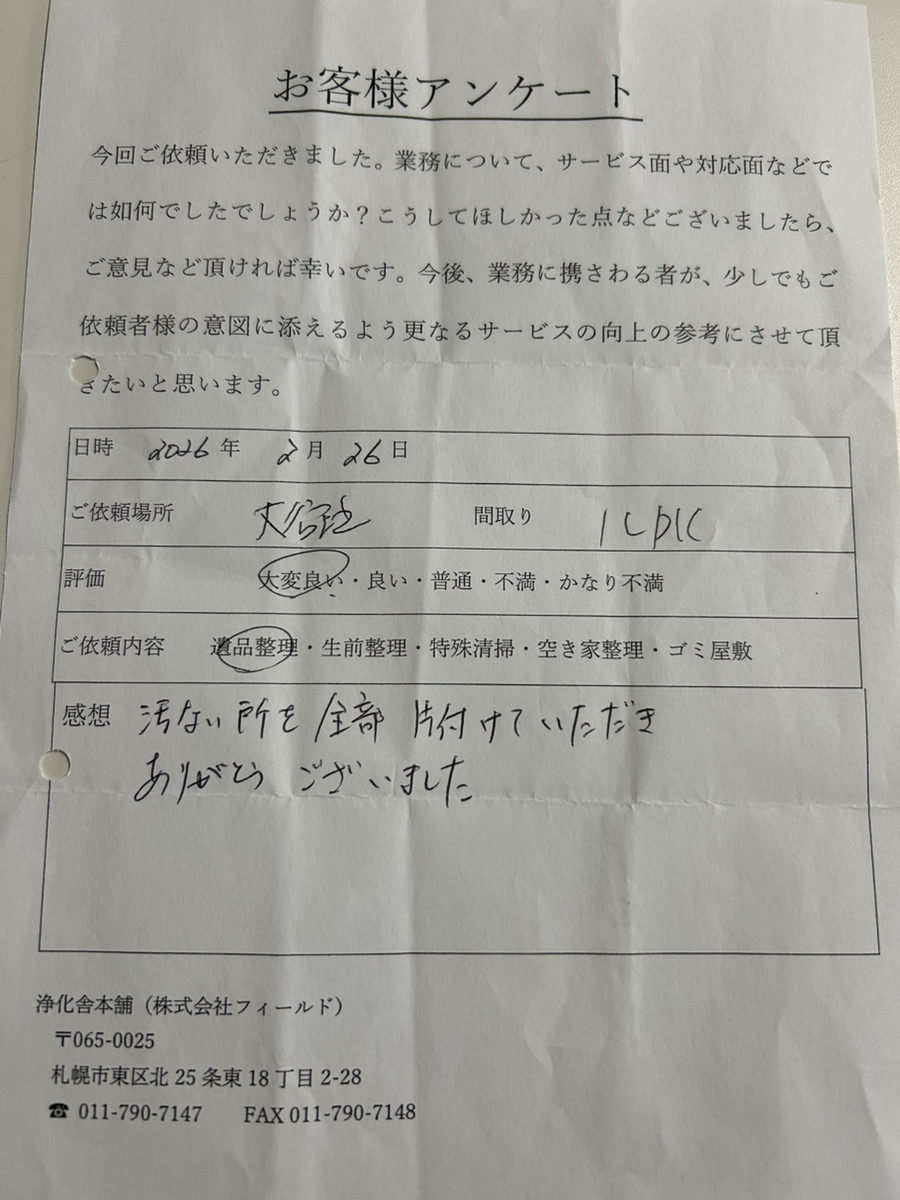 お客様アンケート
今回ご依頼いただきました。業務について、サービス面や対応面などで
は如何でしたでしょうか？こうしてほしかった点などございましたら、
ご意見など頂ければ幸いです。今後、業務に携さわる者が、少しでもご
依頼者様の意図に添えるよう更なるサービスの向上の参考にさせて頂
きたいと思います。
日時 2026年 2月 26日
ご依頼場所 大谷地 間取り 1LDK
評価 大変良い・良い・普通・不満・かなり不満
ご依頼内容 遺品整理・生前整理・特殊清掃・空き家整理・ゴミ屋敷
感想 汚ない所を全部片付けていただき
ありがとうございました
浄化舎本舗（株式会社フィールド）
〒065-0025
札幌市東区北 25 条東 18 丁目 2-28
☎ 011-790-7147 FAX 011-790-7148